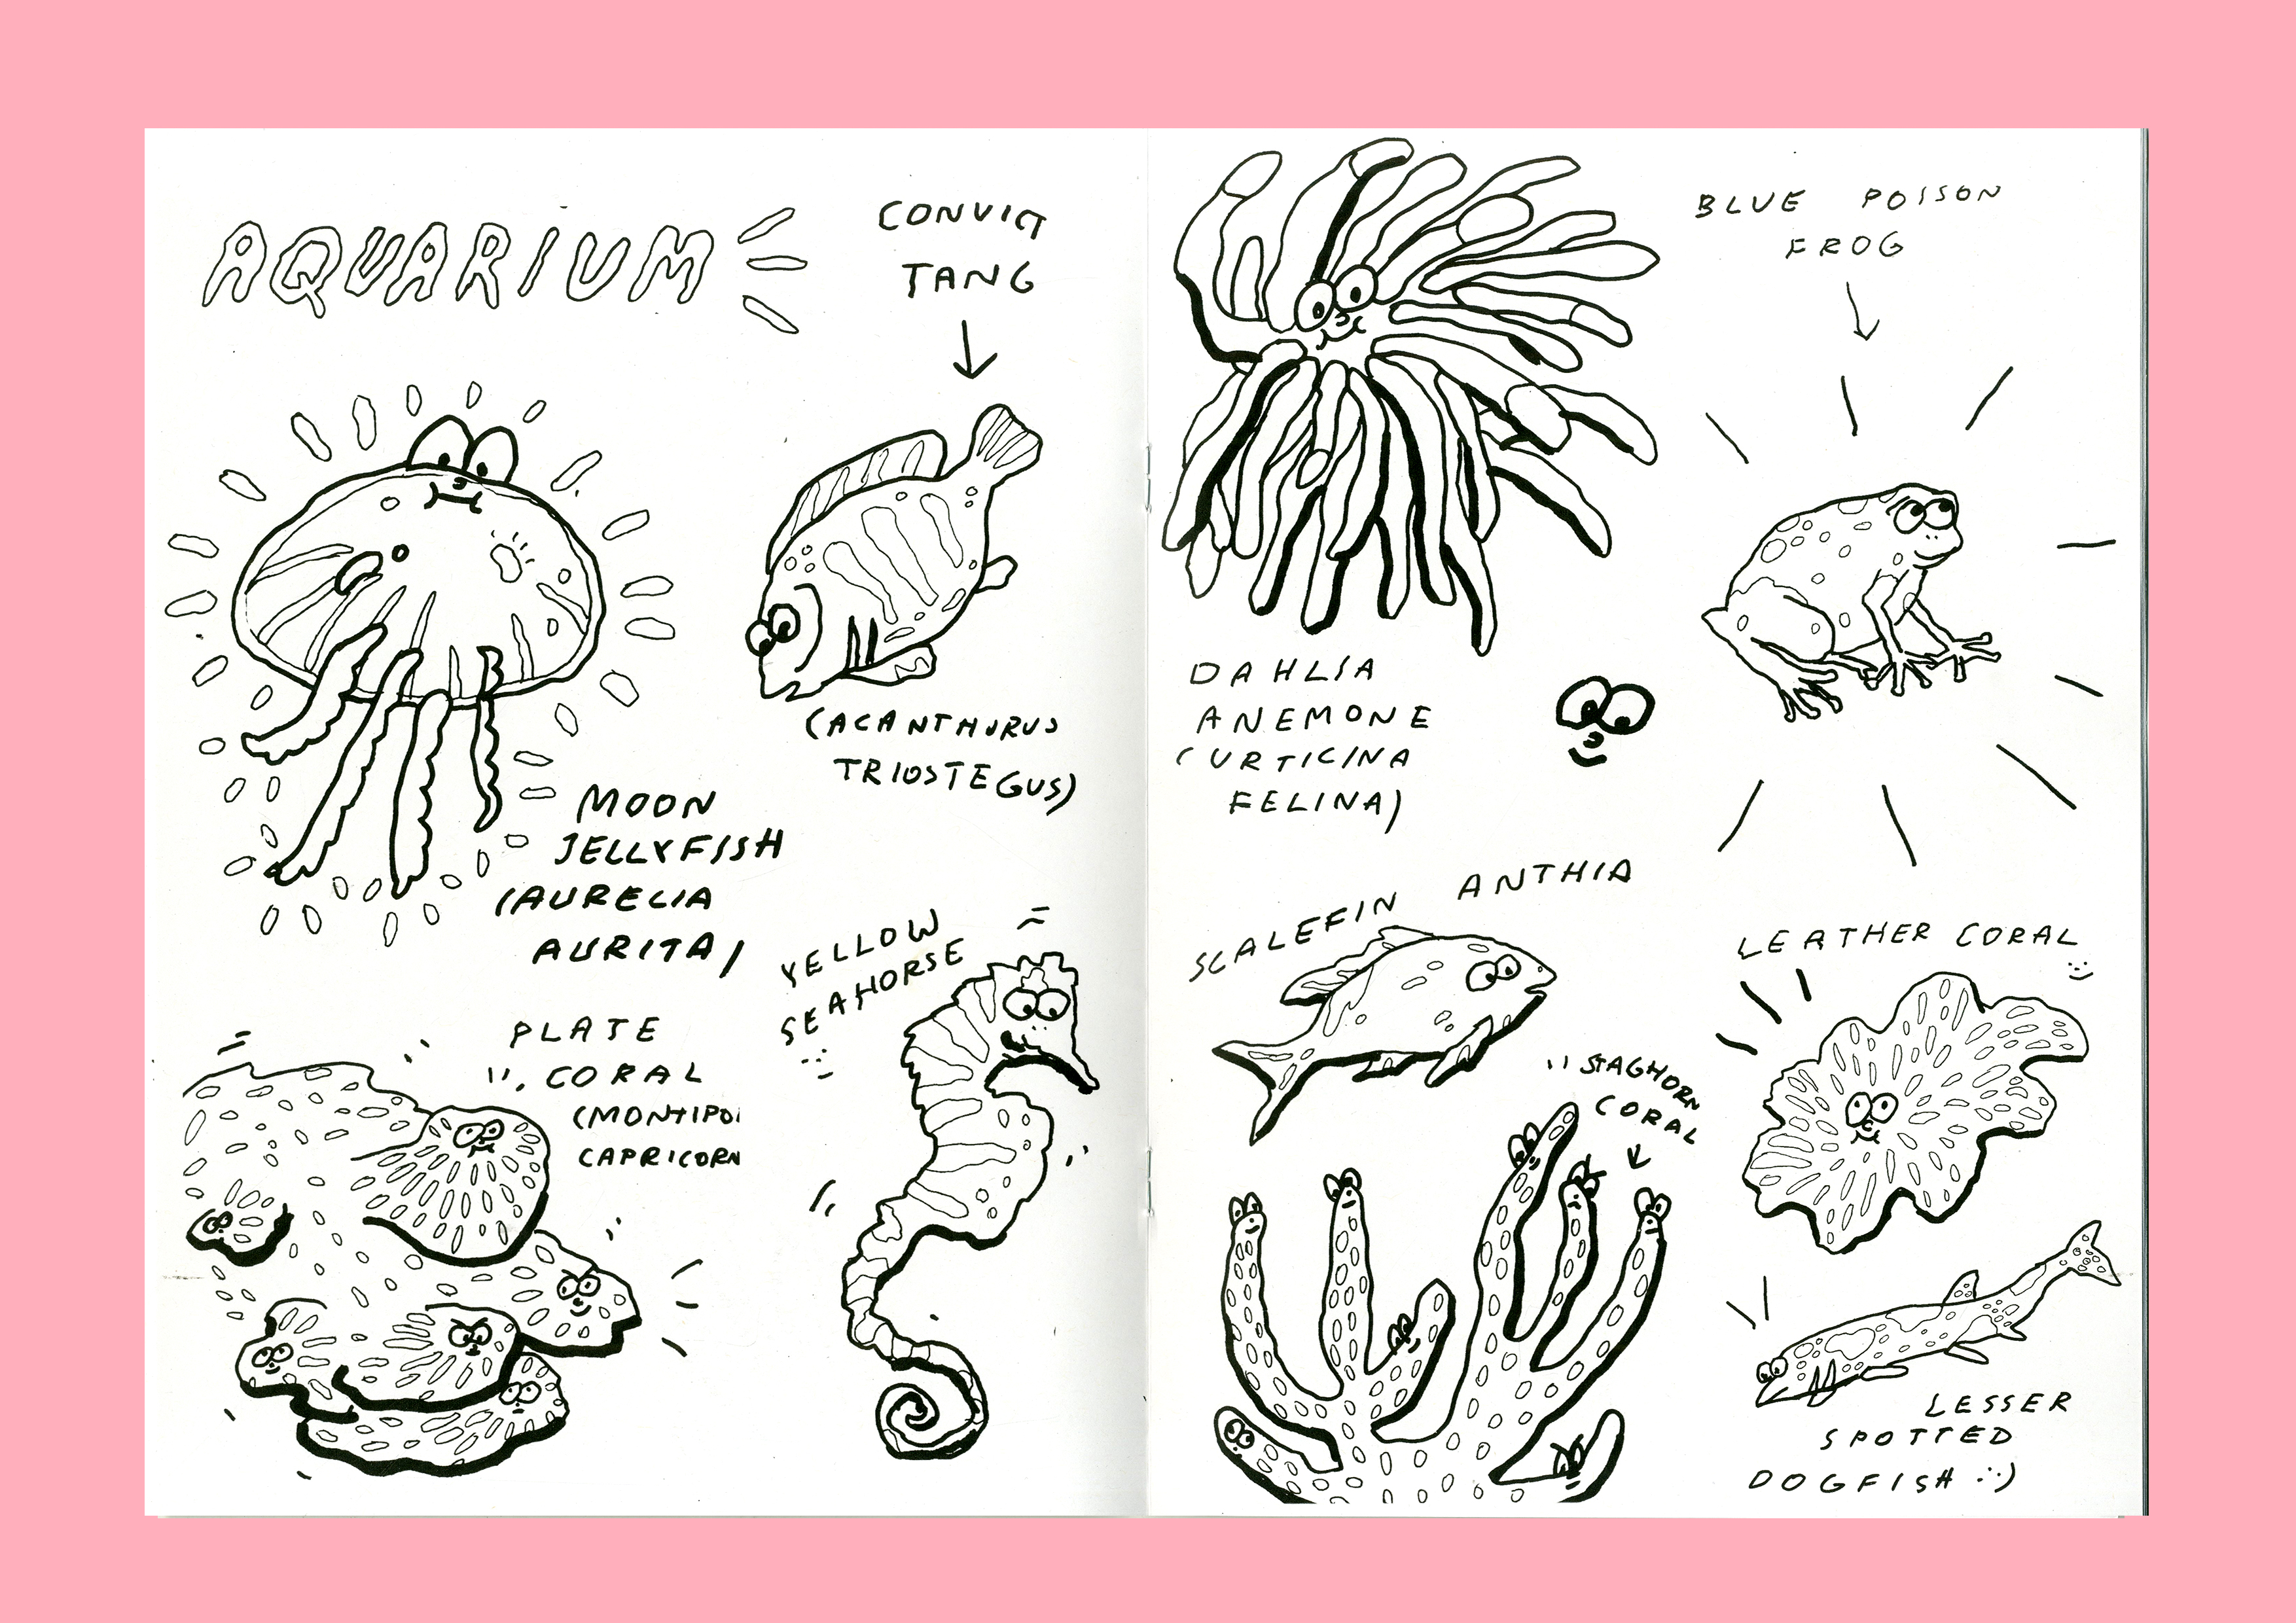 AQUARIUM
CONVICT
TANG
(ACANTHURUS
TRIOSTEGUS)
MOON
JELLYFISH
(AURELIA
AURITA)
YELLOW
SEAHORSE
PLATE
CORAL
(MONTIPO
CAPRICORN
DAHLIA
ANEMONE
(URTICINA
FELINA)
BLUE POISON
FROG
SCALEFIN ANTHIA
STAGHORN
CORAL
LEATHER CORAL
LESSER
SPOTTED
DOGFISH :)